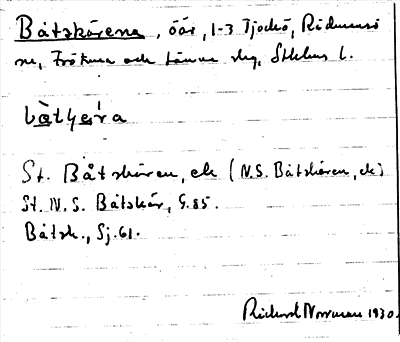 Båtskärena, öar, 1-3 Tjockö, Rådmansö
sn, Frötuna och Länna skg, Sthlms l.
bàtʃæ̀ra
St. Båtskären, ek (N.S. Båtskären, ek)
St. N. S. Båtskär, G.85.
Båtsk., Sj.61.
Rickard Norrman 1930.